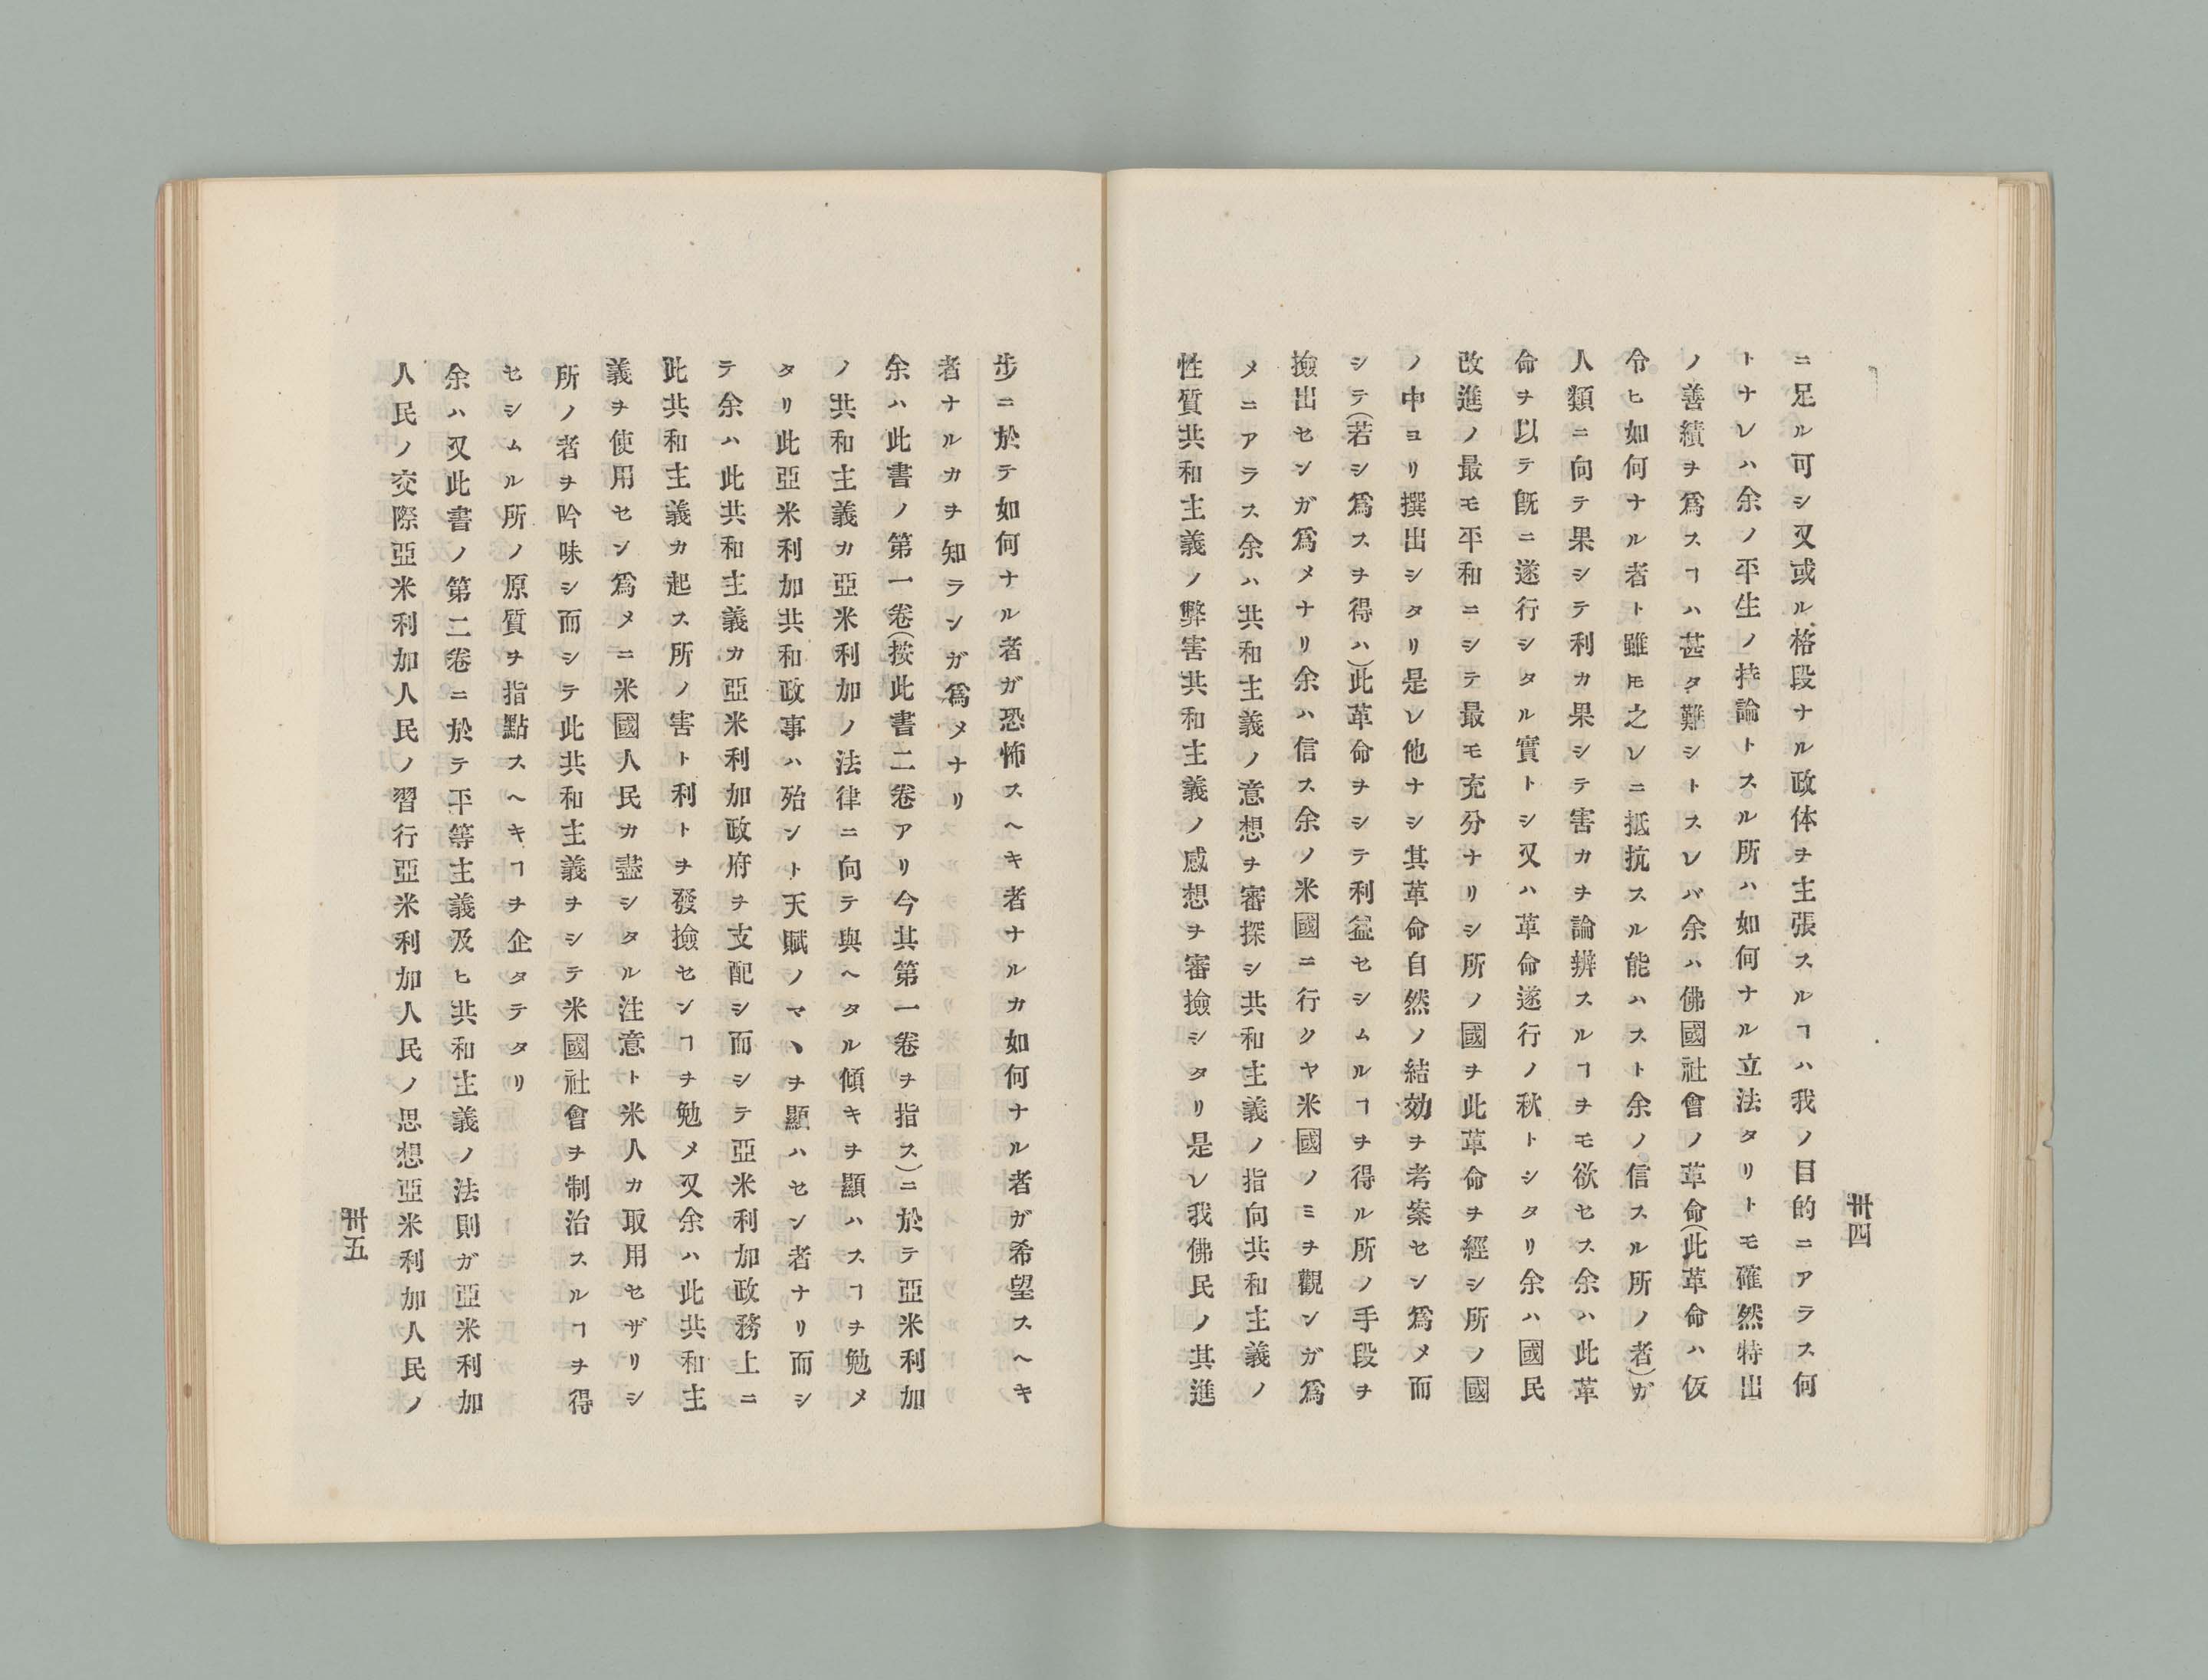 ニ足ル可シ又或ル格段ナル政体ヲ主張スルヿハ我ノ目的ニアラス何
トナレハ余ノ平生ノ持論トスル所ハ如何ナル立法タリトモ確然特出
ノ善績ヲ爲スヿハ甚タ難シトスレバ余ハ佛國社會ノ革命(此革命ハ仮
令ヒ如何ナル者ト雖𪜈之レニ抵抗スル能ハスト余ノ信スル所ノ者)ガ
人類ニ向テ果シテ利カ果シテ害カヲ論辨スルヿヲモ欲セス余ハ此革
命ヲ以テ既ニ遂行シタル實トシ又ハ革命遂行ノ秋トシタリ余ハ國民
改進ノ最モ平和ニシテ最モ充分ナリシ所ノ國ヲ此革命ヲ經シ所ノ國
ノ中ヨリ撰出シタリ是レ他ナシ其革命自然ノ結効ヲ考案セン爲メ而
シテ(若シ爲スヲ得ハ)此革命ヲシテ利益セシムルヿヲ得ル所ノ手段ヲ
撿出センガ爲メナリ余ハ信ス余ノ米國ニ行クヤ米國ノミヲ觀ンガ爲
メニアラス余ハ共和主義ノ意想ヲ審探シ共和主義ノ指向共和主義ノ
性質共和主義ノ弊害共和主義ノ感想ヲ審撿シタリ是レ我佛民ノ其進
丗四
步ニ於テ如何ナル者ガ恐怖スヘキ者ナルカ如何ナル者ガ希望スヘキ
者ナルカヲ知ランガ爲メナリ
余ハ此書ノ第一卷(按此書二卷アリ今其第一卷ヲ指ス)ニ於テ亞米利加
ノ共和主義カ亞米利加ノ法律ニ向テ與ヘタル傾キヲ顯ハスヿヲ勉メ
タリ此亞米利加共和政事ハ殆ント天賦ノマヽヲ顯ハセン者ナリ而シ
テ余ハ此共和主義カ亞米利加政府ヲ支配シ而シテ亞米利加政務上ニ
此共和主義カ起ス所ノ害ト利トヲ發撿センヿヲ勉メ又余ハ此共和主
義ヲ使用セン爲メニ米國人民カ盡シタル注意ト米人カ取用セザリシ
所ノ者ヲ吟味シ而シテ此共和主義ヲシテ米國社會ヲ制治スルヿヲ得
セシムル所ノ原質ヲ指點スヘキヿヲ企タテタリ
余ハ又此書ノ第二卷ニ於テ平等主義及ヒ共和主義ノ法則ガ亞米利加
人民ノ交際亞米利加人民ノ習行亞米利加人民ノ思想亞米利加人民ノ
丗五